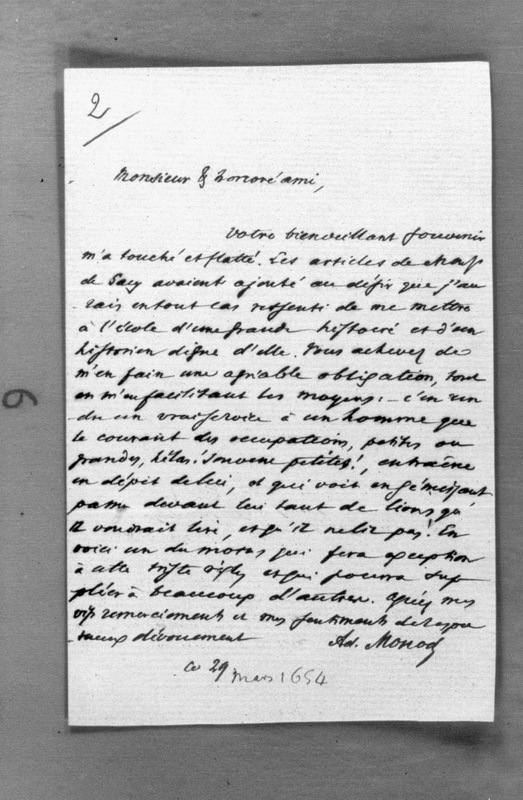 2
Monsieur & honoré ami,
Votre bienveillant souvenir
m'a touché et flatté. Les articles de Mons
de Sacy avaient ajouté au désir que j'au
rais en tout cas ressenti de me mettre
à l'école d'une grande histoire et d'un
historien digne d'elle. Vous achevez de
m'en faire une agréable obligation, tout
en m'en facilitant les moyens: - c'en ren
dre un vrai service à un homme que
le courant des occupations, petites ou
grandes, hélas! souvent petites!, entraîne
en dépit de lui, et qui voit en gémissant
passer devant lui tant de livres qu'
il voudrait lire, et qu'il ne lit pas! En
voici un du moins qui fera exception
à cette triste règle, et qui pourra sup
pléer à beaucoup d'autres. Agréez mes
vifs remerciements et mes sentiments de respec
tueux dévouement
Ad. Monod
Ce 29 mars 1654
6